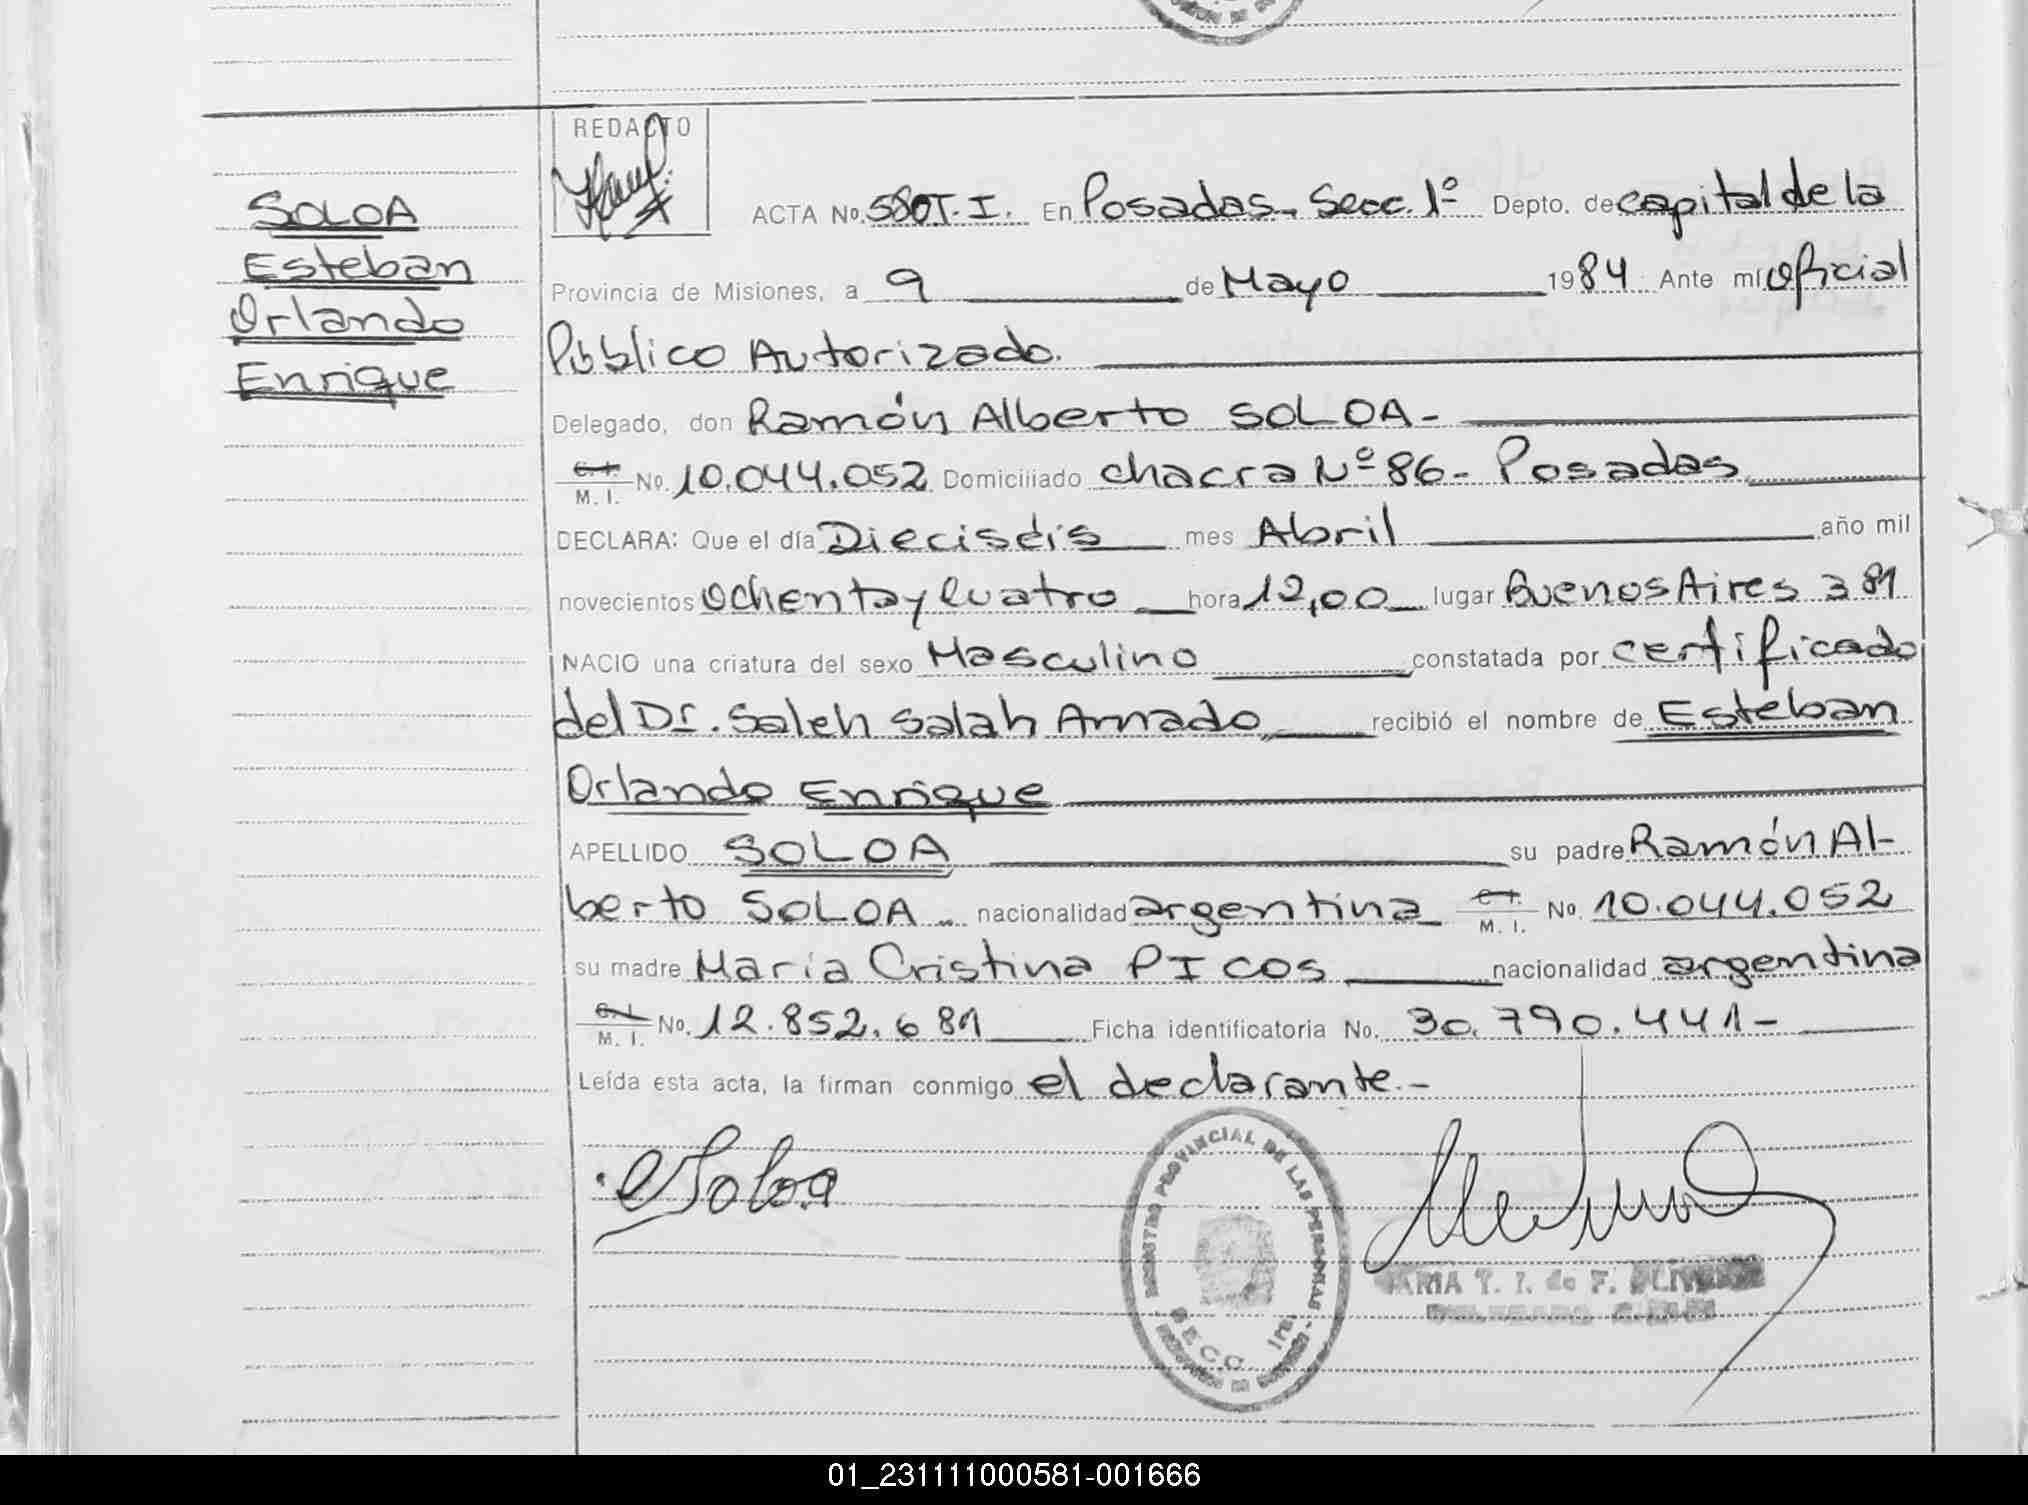 SOLOA
Esteban
Orlando
Enrique
REDACTO
ACTA No. 580 T. I. En Posadas. Secc. 1º Depto. de capital de la
Provincia de Misiones, a 9 de Mayo 1984 Ante mí Oficial
Público Autorizado.
Delegado, don Ramón Alberto SOLOA-
C. I. M. I. No. 10.044.052 Domiciliado chacra Nº 86- Posadas
DECLARA: Que el día Dieciséis mes Abril año mil
novecientos Ochenta y Cuatro hora 12,00 lugar Buenos Aires 381
NACIO una criatura del sexo Masculino constatada por certificado
del Dr. Saleh Salah Amado, recibió el nombre de Esteban
Orlando Enrique
APELLIDO SOLOA su padre Ramón Al-
berto SOLOA nacionalidad argentina C. I. M. I. No. 10.044.052
su madre María Cristina PICOS nacionalidad argentina
C. I. M. I. No. 12.852.681 Ficha identificatoria No. 30.790.441-
Leída esta acta, la firman conmigo el declarante.-
Soloa
REGISTRO PROVINCIAL DE LAS PERSONAS
SECC. 1ra.
MARIA T. I. de F. OLIVERA
01_231111000581-001666